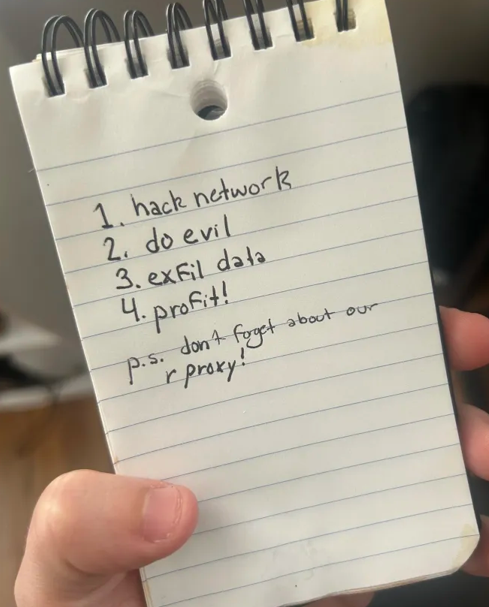 1. hack network
2. do evil
3. exfil data
4. profit!
p.s. don't foget about our
r proxy!